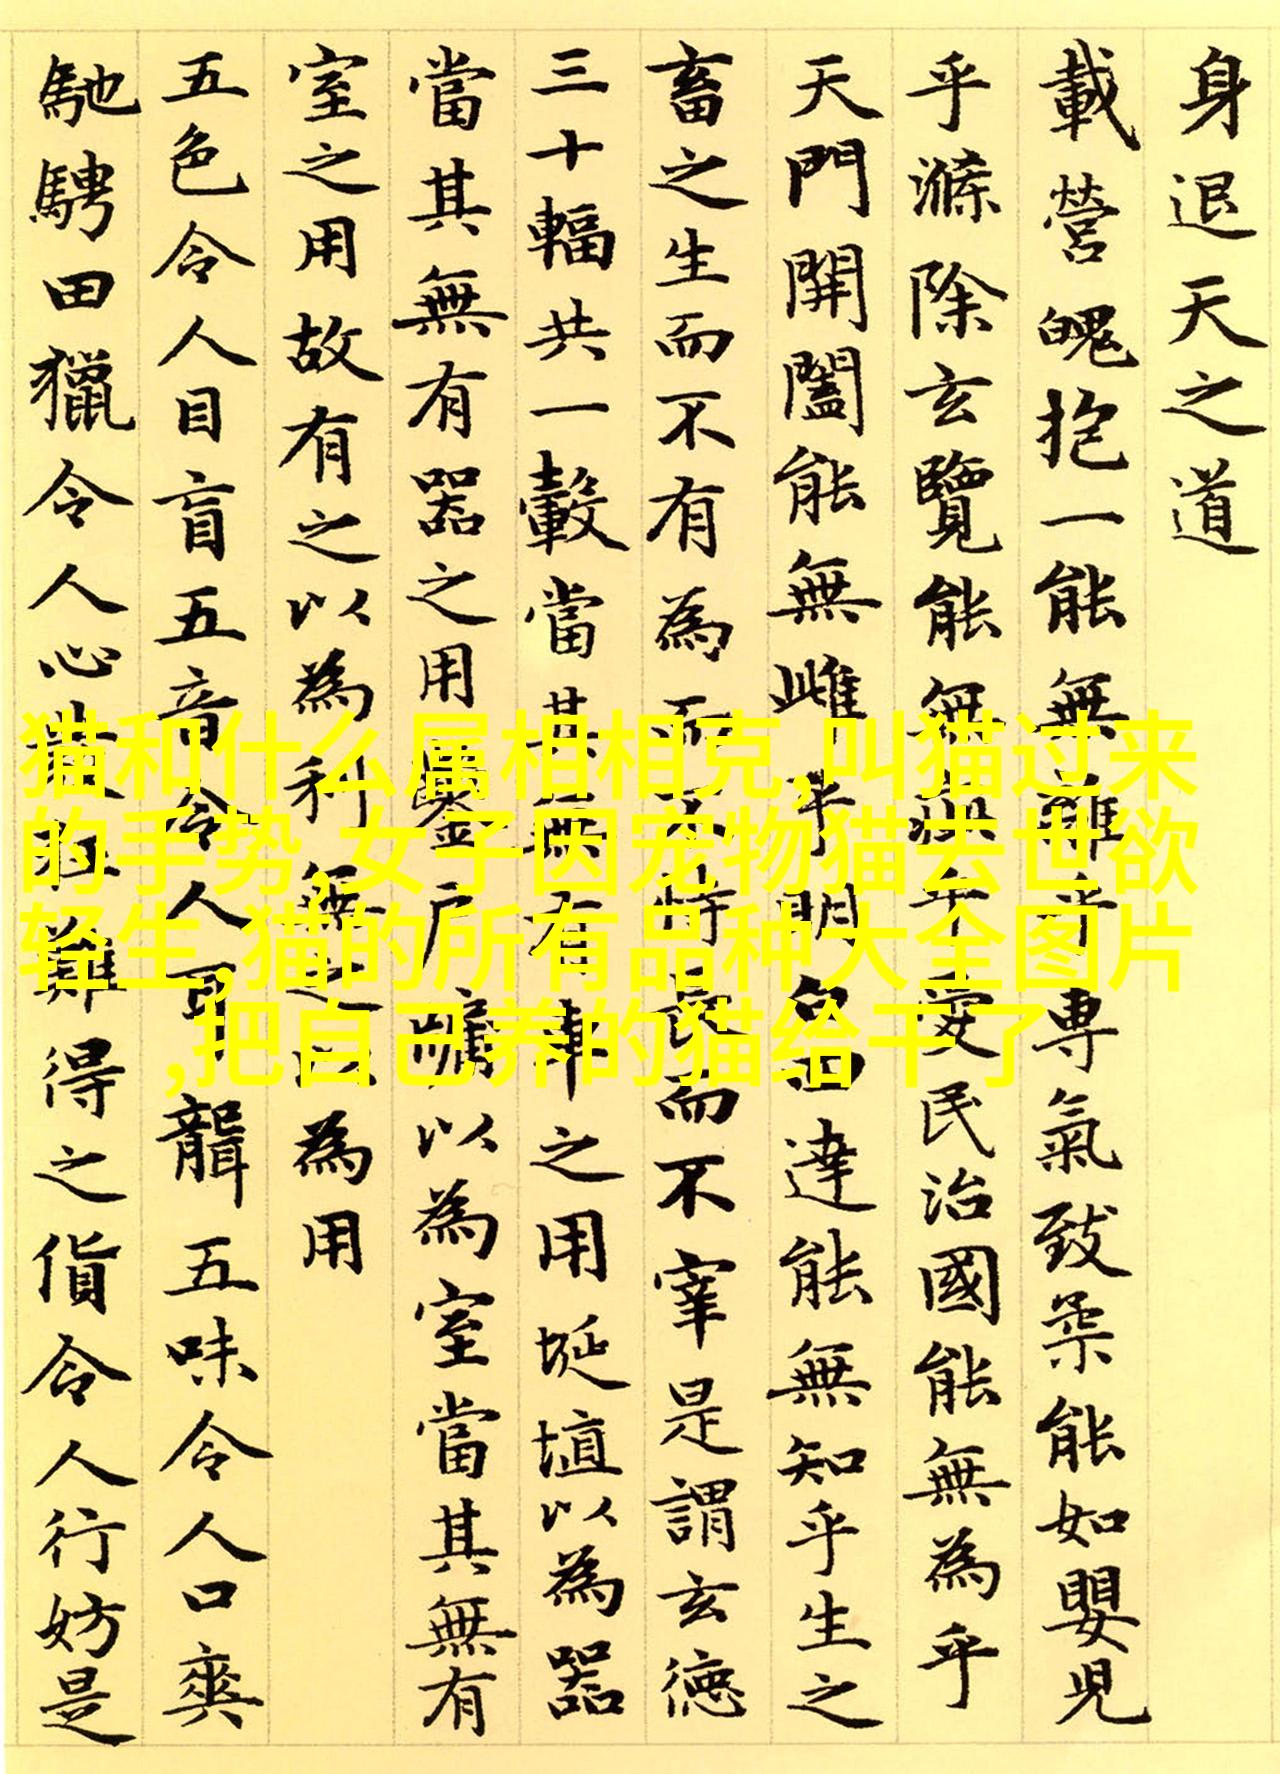 身退天之道
載營魄抱一能無離乎專氣致柔能如嬰兒
乎滌除玄覽能無疵乎愛民治國能無為乎
天門開闔能無雌乎明白四達能無知乎生之
畜之生而不有為而不恃長而不宰是謂玄德
三十輻共一轂當其無有車之用埏埴以為器
當其無有器之用鑿戶牖以為室當其無有
室之用故有之以為利無之以為用
五色令人目盲五音令人耳聾五味令人口爽
馳騁田獵令人心發狂難得之貨令人行妨是
猫和什么属相相克,叫猫过来
的手势,女子因宠物猫去世欲
轻生,猫的所有品种大全图片
,把自己养的猫给干了